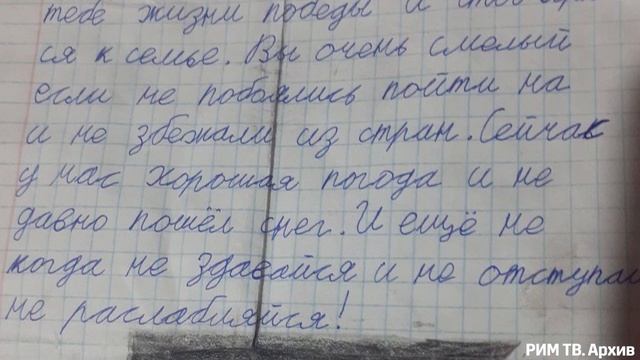 тебе жизни победы и
ся к семье. Вы очень смелый
если не побоялись пойти на
и не збежали из стран. Сейчас
у нас хорошая погода и не
давно пошёл снег. И ещё не
когда не здавайся и не отступай
не раслабляйся!
РИМ ТВ. Архив